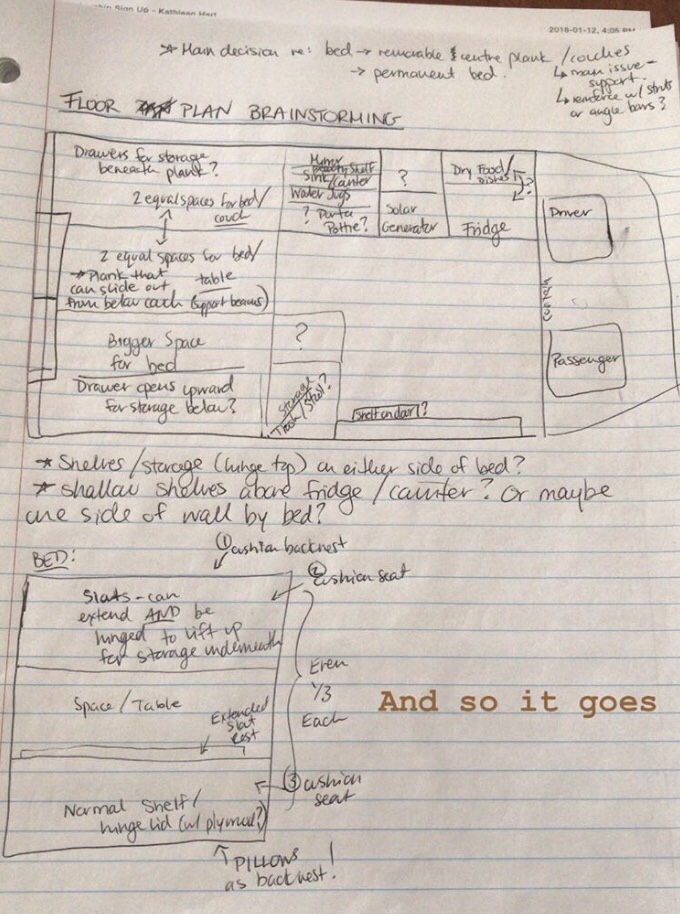 Sign Up - Kathleen Hart
2018-01-12, 4:05 PM
* Main decision re: bed → removable centre plank / couches
↳ main issue - support.
→ permanent bed.
↳ reinforce w/ struts or angle bars?
FLOOR PLAN BRAINSTORMING
Drawers for storage
beneath plank?
2 equal spaces for bed/
couch
2 equal spaces for bed/
* Plank that table
can slide out
from below couch (support beams)
Bigger Space
for bed
Drawer opens upward
for storage below?
Mirror
Shelf
Sink/Counter
Water Jugs
? Porta
Pottie?
?
Solar
Generator
Dry Food/
Dishes
?
Fridge
Driver
Curtain
Passenger
?
Storage
Trash/
Shelf on door?
* Shelves/storage (hinge top) on either side of bed?
* Shallow shelves above fridge/counter? Or maybe
one side of wall by bed?
BED:
① Cushion backrest
② Cushion seat
Slats - can
extend AND be
hinged to lift up
for storage underneath
Space/Table
Extended
slat
rest
Even
1/3
Each
And so it goes
③ cushion
seat
Normal Shelf/
hinge lid (w/ plywood?)
↑ PILLOWS
as backrest!